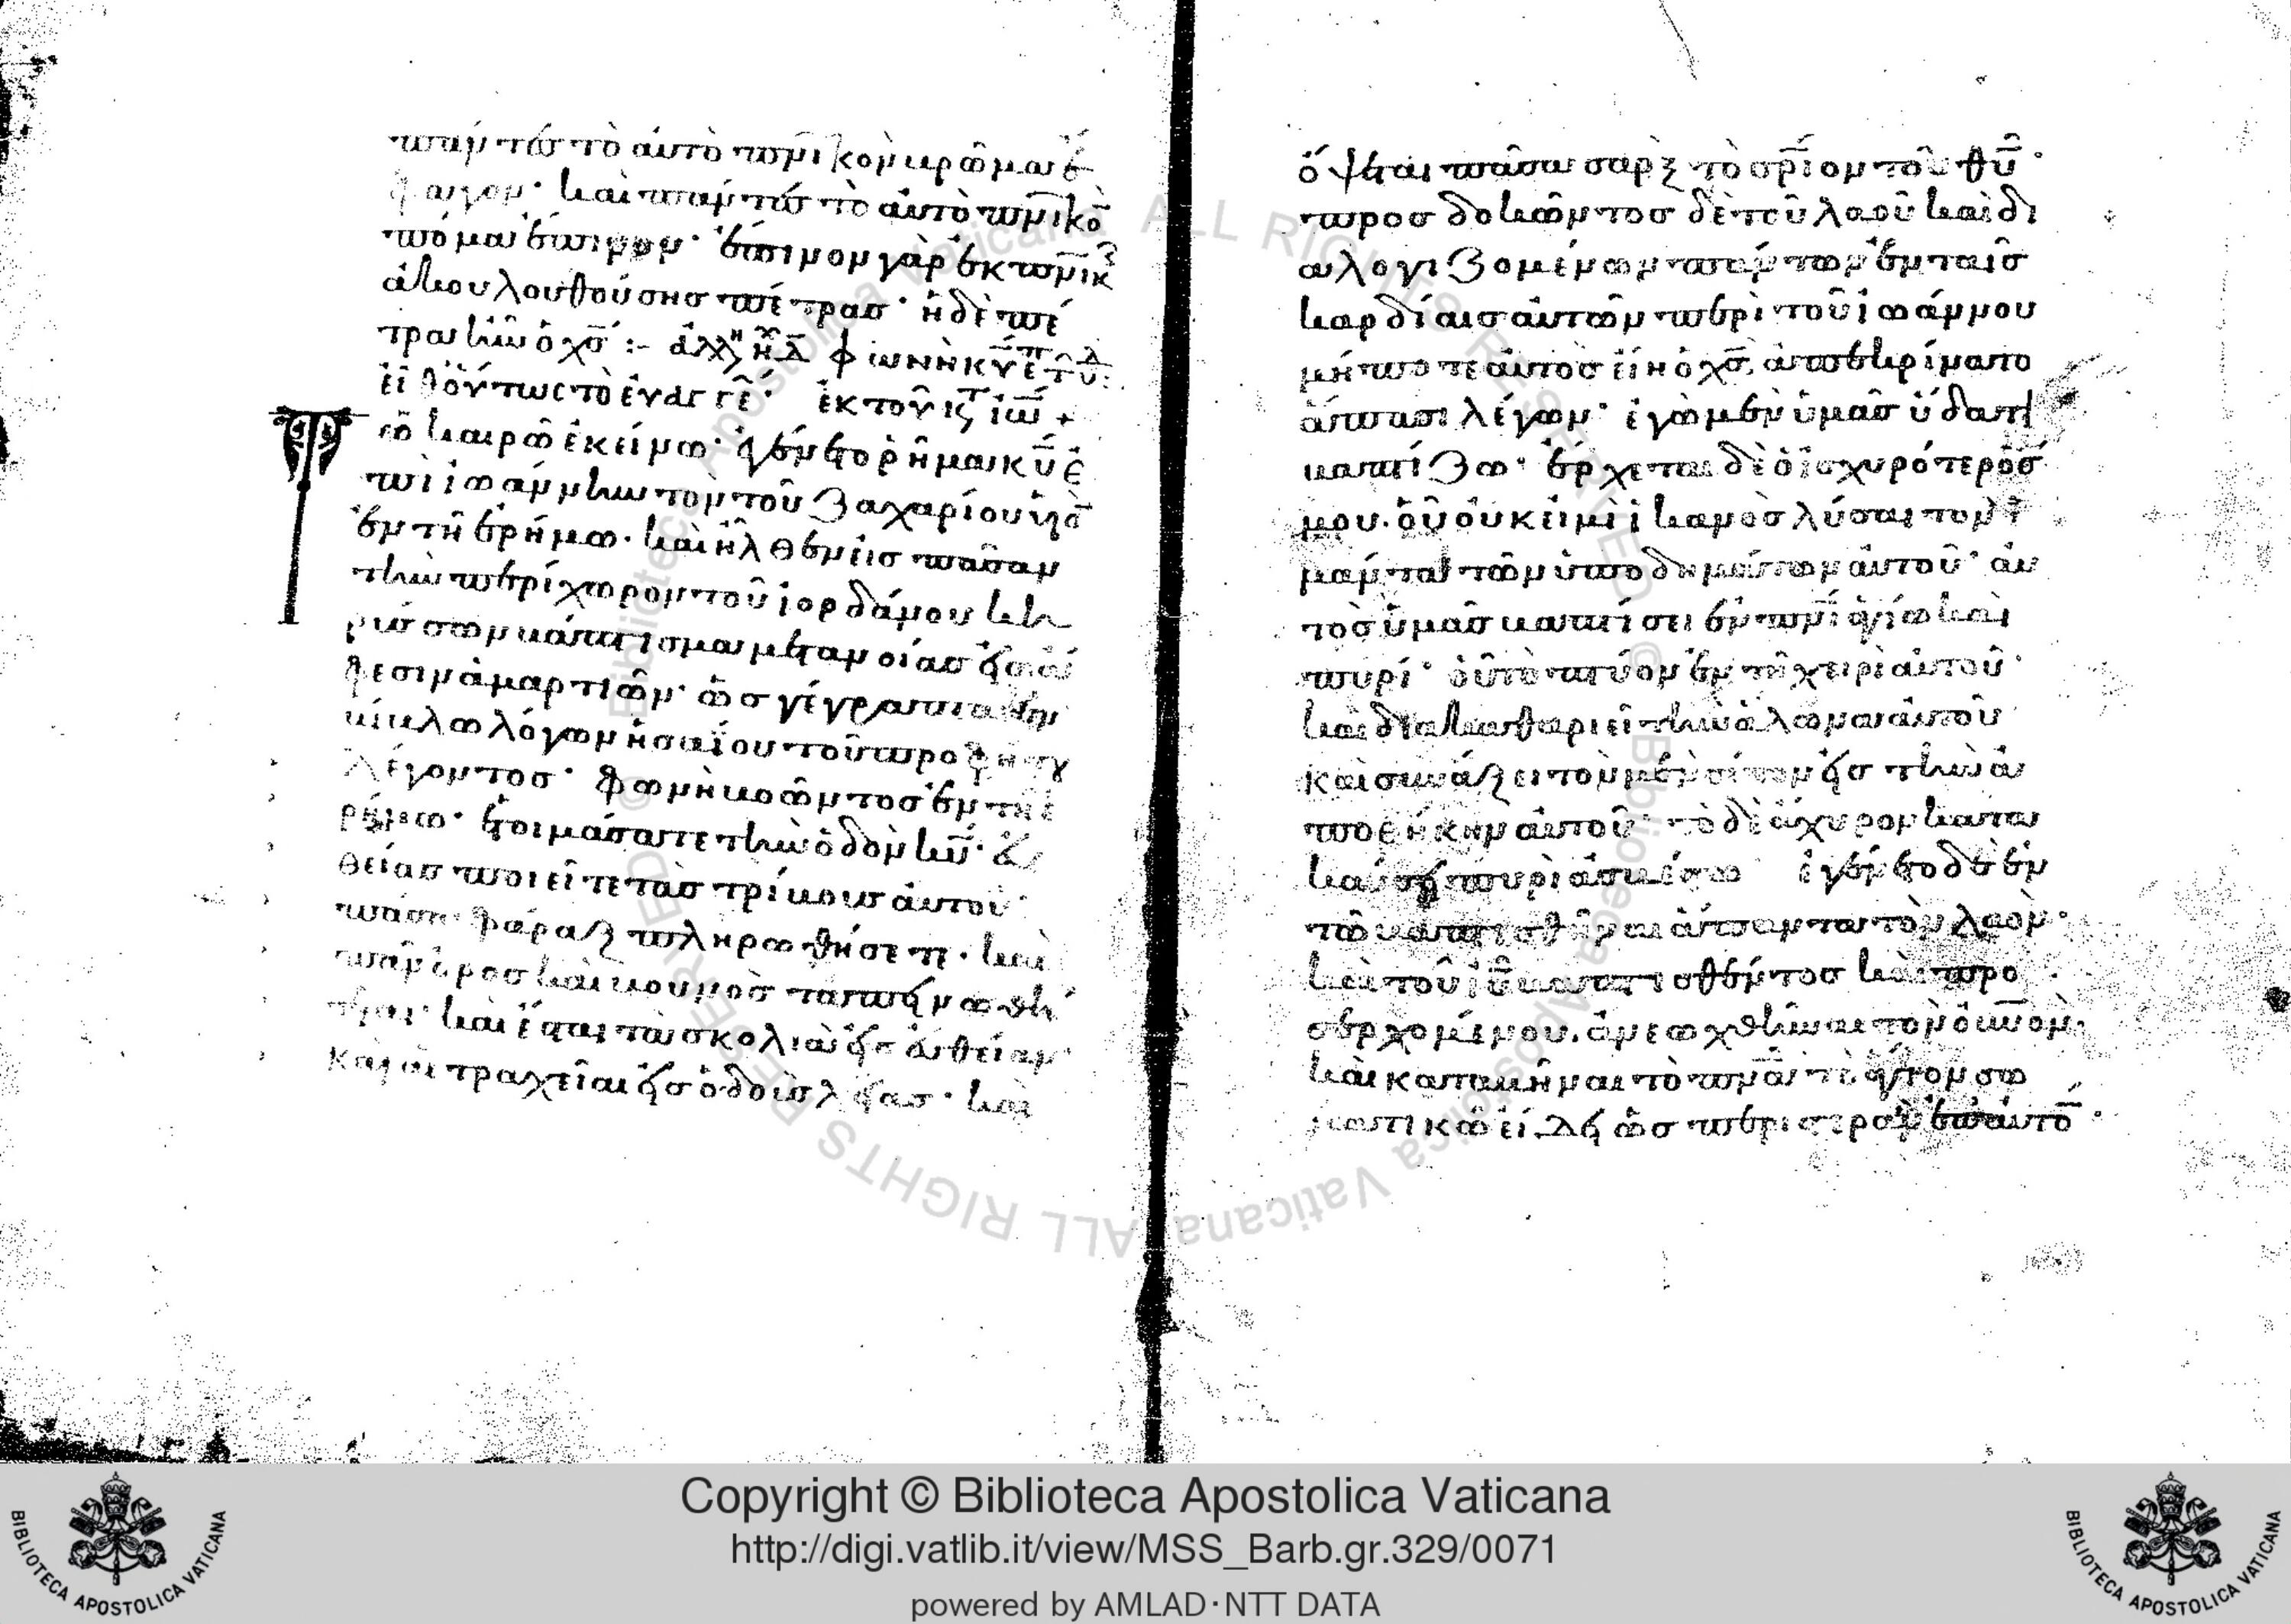 πάντες τὸ αὐτὸ πνικὸν βρῶμα ἔ
φαγον· καὶ πάντες τὸ αὐτὸ πνικὸ
πόμα ἔπιον· ἔπινον γὰρ ἐκ πνικ
ἀκολουθούσης πέτρας· ἡ δὲ πέ
τρα ἦν ὁ χσ :-
φωνὴ κυ ἐπὶ τ υ
εἶθ οὕτως τὸ εὐαγγε· ἐκ τοῦ ιω +
Τ
ῶ καιρῶ ἐκείνω· ἐγένετο ῥῆμα κυ ἐ
πὶ ἰωάννην τὸν τοῦ ζαχαρίου υἱὸ
ἐν τῆ ἐρήμω· καὶ ἦλθεν εἰς πᾶσαν
τὴν περίχωρον τοῦ ἰορδάνου κη
ρύσσων βάπτισμα μετανοίας εἰς ἄ
φεσιν ἁμαρτιῶν· ὡς γέγραπται ἐν
βίβλω λόγων ἡσαΐου τοῦ προφήτου
λέγοντος· φωνὴ βοῶντος ἐν τῆ ἐ
ρήμω· ἑτοιμάσατε τὴν ὁδὸν κυ· εὐ
θείας ποιεῖτε τὰς τρίβους αὐτοῦ·
πᾶσα φάραξ πληρωθήσεται· καὶ
πᾶν ὄρος καὶ βουνὸς ταπεινωθή
σεται· καὶ ἔσται τὰ σκολιὰ εἰς εὐθείαν·
καὶ αἱ τραχεῖαι εἰς ὁδοὺς λείας· καὶ
ὄψεται πᾶσα σὰρξ τὸ σριον τοῦ θυ·
προσδοκῶντος δὲ τοῦ λαοῦ καὶ δι
αλογιζομένων πάντων ἐν ταῖς
καρδίαις αὐτῶν περὶ τοῦ ἰωάννου
μήποτε αὐτὸς εἴη ὁ χσ, ἀπεκρίνατο
ἅπασι λέγων· ἐγὼ μὲν ὑμᾶς ὕδατι
βαπτίζω· ἔρχεται δὲ ὁ ἰσχυρότερός
μου· οὗ οὐκ εἰμὶ ἱκανὸς λῦσαι τὸν ἱ
μάντα τῶν ὑποδημάτων αὐτοῦ· αὐ
τὸς ὑμᾶς βαπτίσει ἐν πνι ἁγίω καὶ
πυρί· οὗ τὸ πτύον ἐν τῆ χειρὶ αὐτοῦ·
καὶ διακαθαριεῖ τὴν ἅλωνα αὐτοῦ
καὶ συνάξει τὸν μὲν σῖτον εἰς τὴν ἀ
ποθήκην αὐτοῦ· τὸ δὲ ἄχυρον κατα
καύσει πυρὶ ἀσβέστω ἐγένετο δὲ ἐν
τῶ βαπτισθῆναι ἅπαντα τὸν λαὸν·
καὶ τοῦ ιυ βαπτισθέντος καὶ προ
σερχομένου· ἀνεωχθῆναι τὸν οὐνον·
καὶ καταβῆναι τὸ πνα τὸ ἅγιον σω
ματικῶ εἴδει ὡς περιστερὰν ἐπ αὐτὸ·
Copyright © Biblioteca Apostolica Vaticana
http://digi.vatlib.it/view/MSS_Barb.gr.329/0071
powered by AMLAD·NTT DATA
BIBLIOTECA APOSTOLICA VATICANA
BIBLIOTECA APOSTOLICA VATICANA
© Biblioteca Apostolica Vaticana ALL RIGHTS RESERVED